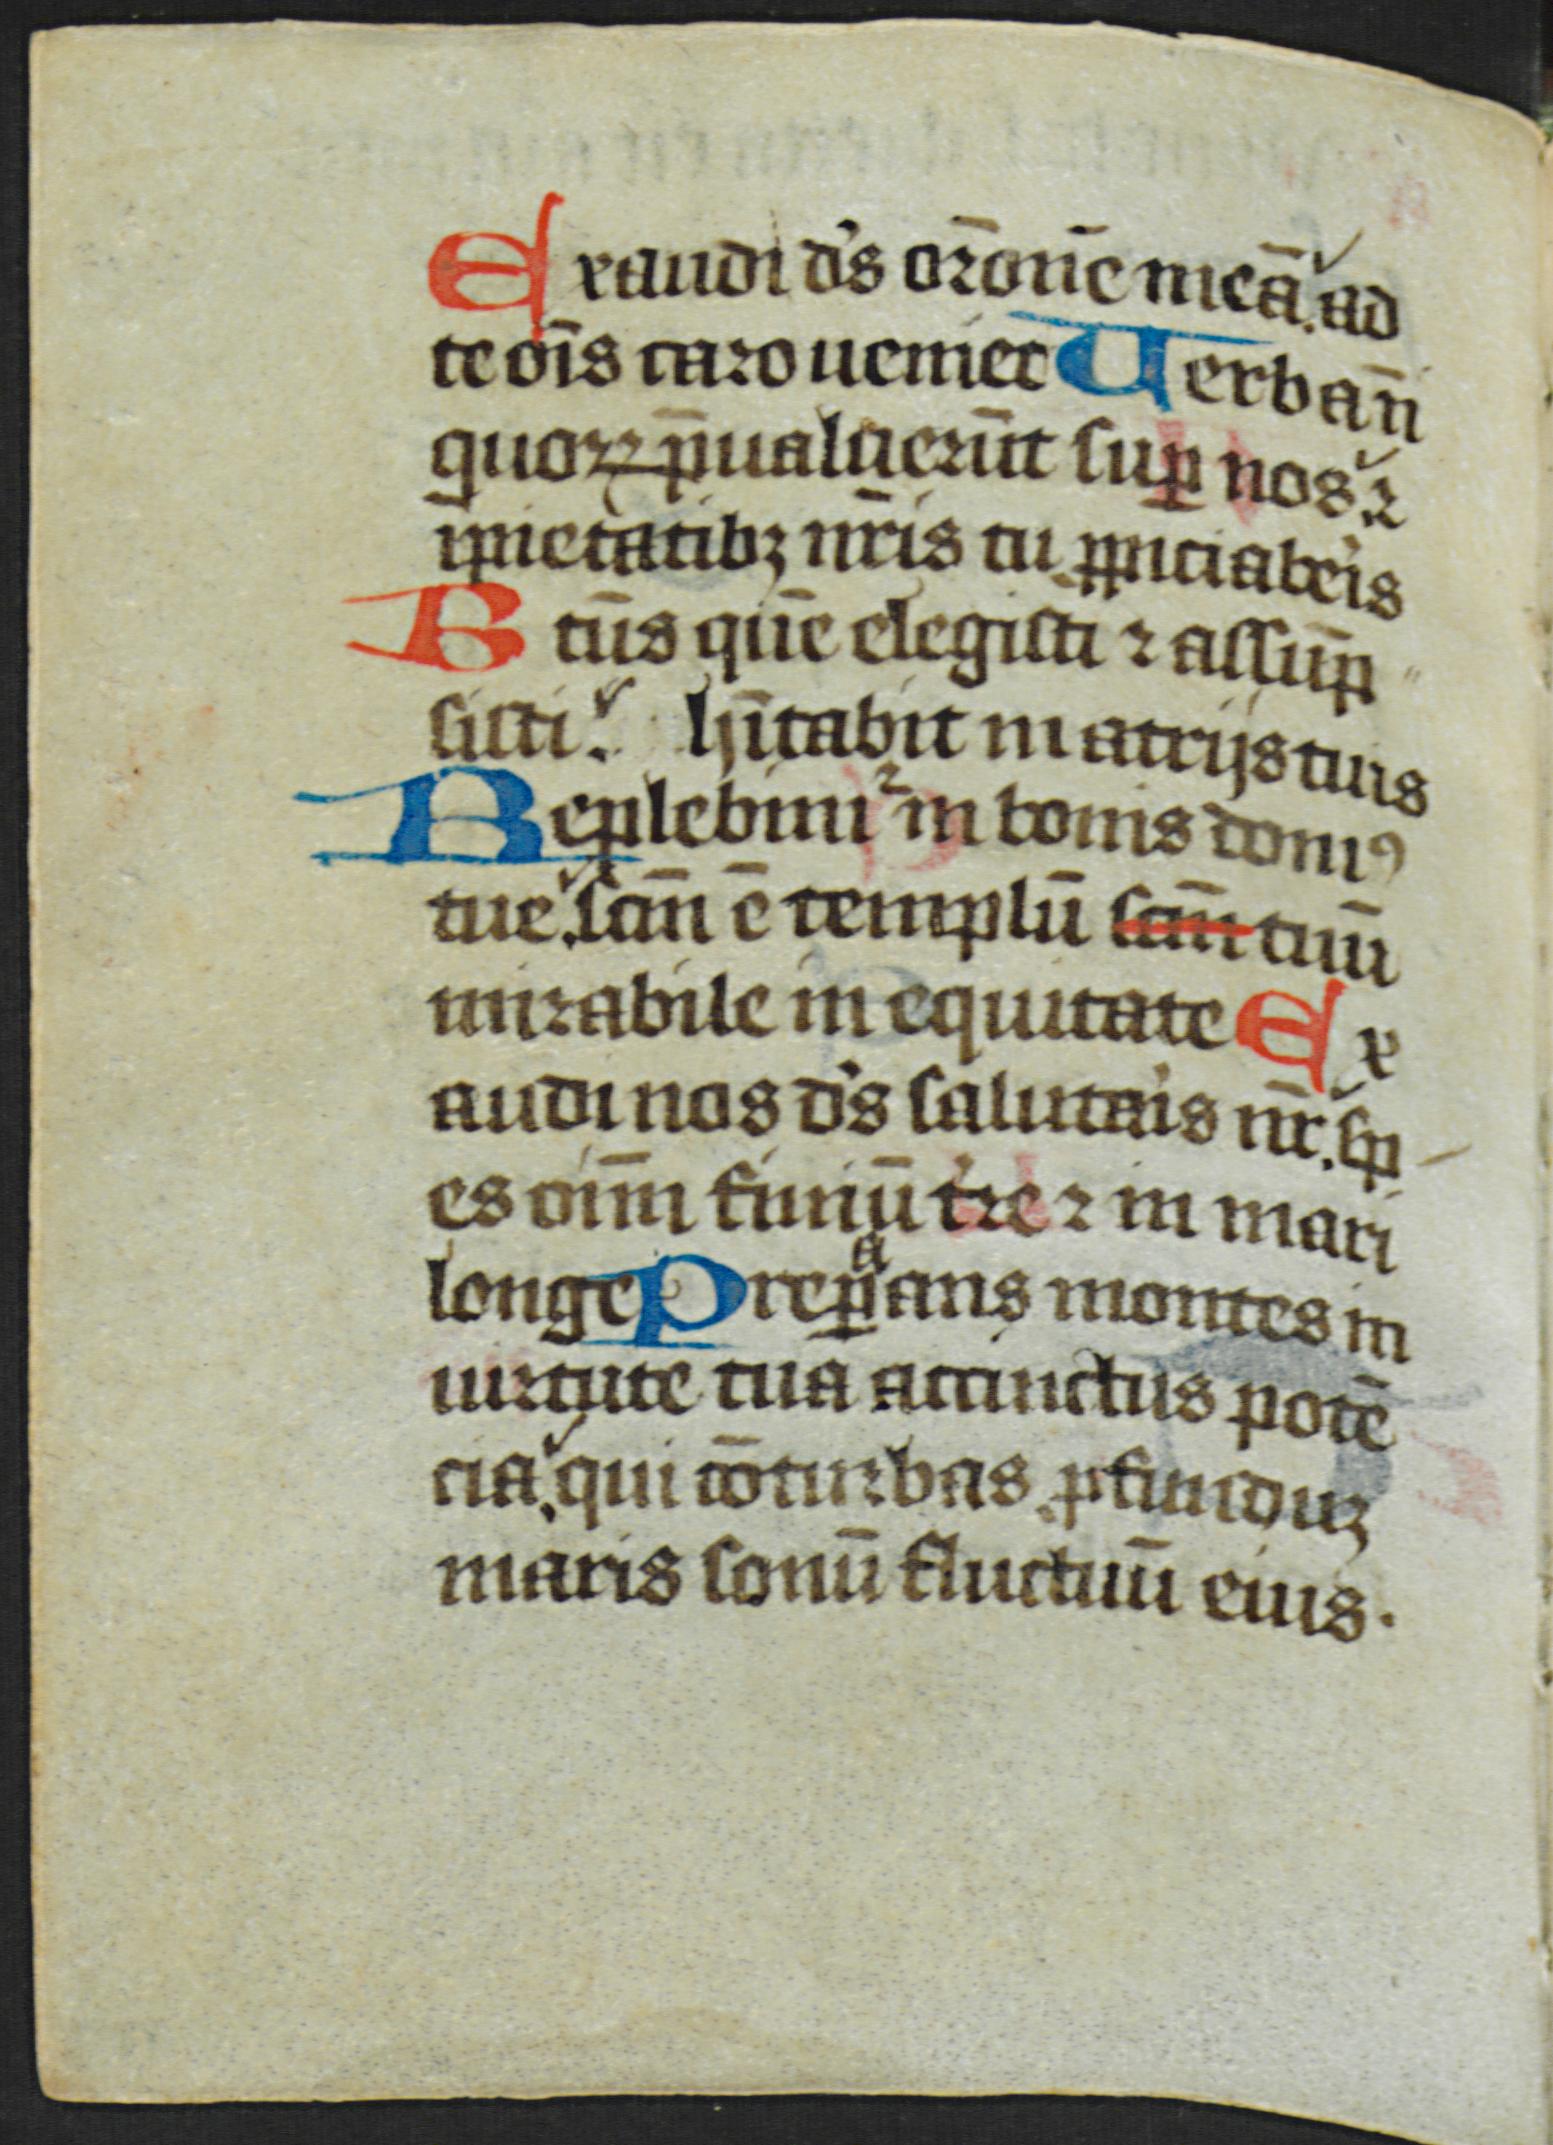 Exaudi d's or̄onē meā. ad
te oīs caro ueniet Uerba nr̄i
quoꝝ p̄ualuerūt suꝑ nos. ⁊
īpietatibꝫ nr̄is tu ꝓpiciaber̾is
Btūs quē elegisti ⁊ assūp
sisti. hītabit in atrijs tuis
Replebim᷑ in bonis domꝰ
tue. scm̄ ē templū scm̄ tuū
mirabile in equitate Ex
audi nos d's salutar̾is nr̄. sp
es oīm finiū t̾re ⁊ in mari
longe Prep̲aans montes in
uirtute tua accinctus potē
cia. qui cōturbas ꝓfunduꝫ
maris sonū fluctuū eius.